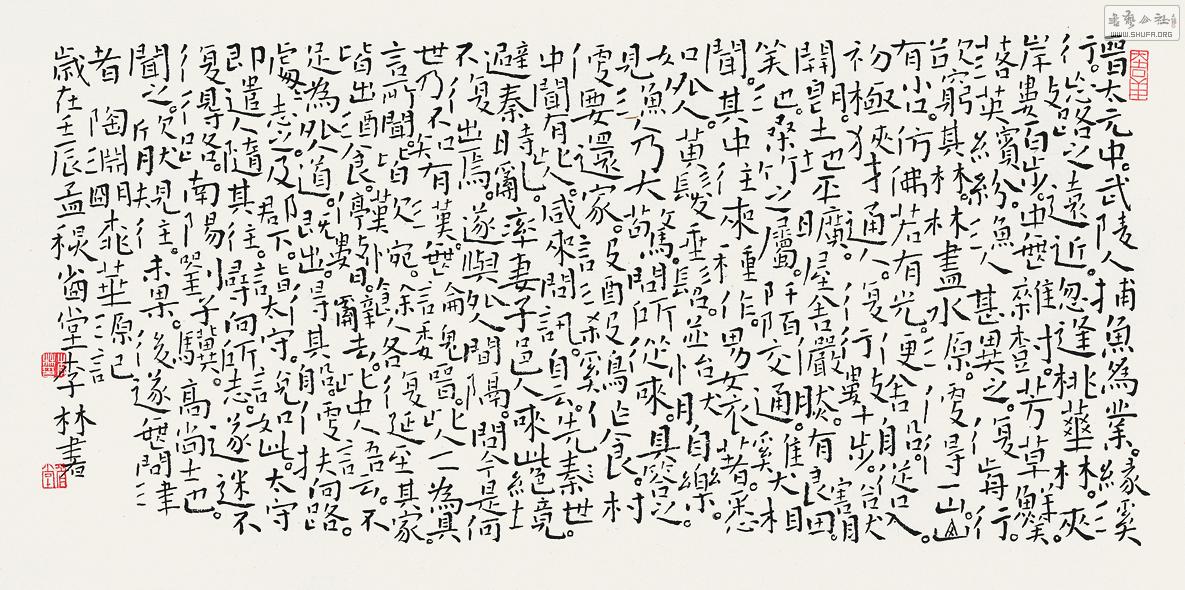 晉太元中。武陵人捕魚為業。緣溪
行。忘路之遠近。忽逢桃華林。夾
岸數百步。中無雜樹。芳草鮮美。
落英繽紛。漁人甚異之。復前行。
欲窮其林。林盡水原。便得一山。山
有小口。仿佛若有光。便舍船。從口入。
初極狹。才通人。復行數十步。豁然
開朗。土地平曠。屋舍儼然。有良田
美池。桑竹之屬。阡陌交通。雞犬相
聞。其中往來種作。男女衣著。悉
如外人。黃髮垂髫。並怡然自樂。
見漁人。乃大驚。問所從來。具答之。
便要還家。設酒殺雞作食。村
中聞有此人。咸來問訊。自云。先世
避秦時亂。率妻子邑人來此絕境。
不復出焉。遂與外人間隔。問今是何
世。乃不知有漢。無論魏晉。此人一一為具
言所聞。皆歎惋。餘人各復延至其家。
皆出酒食。停數日。辭去。此中人語云。不
足為外人道。既出。得其船。便扶向路。
處處志之。及郡下。詣太守。說如此。太守
即遣人隨其往。尋向所志。遂迷不
復得路。南陽劉子驥。高尚士也。
聞之。欣然規往。未果。後遂無問津
者。陶淵明桃華源記
歲在壬辰孟秋堂李林書
WWW.SHUFA.ORG